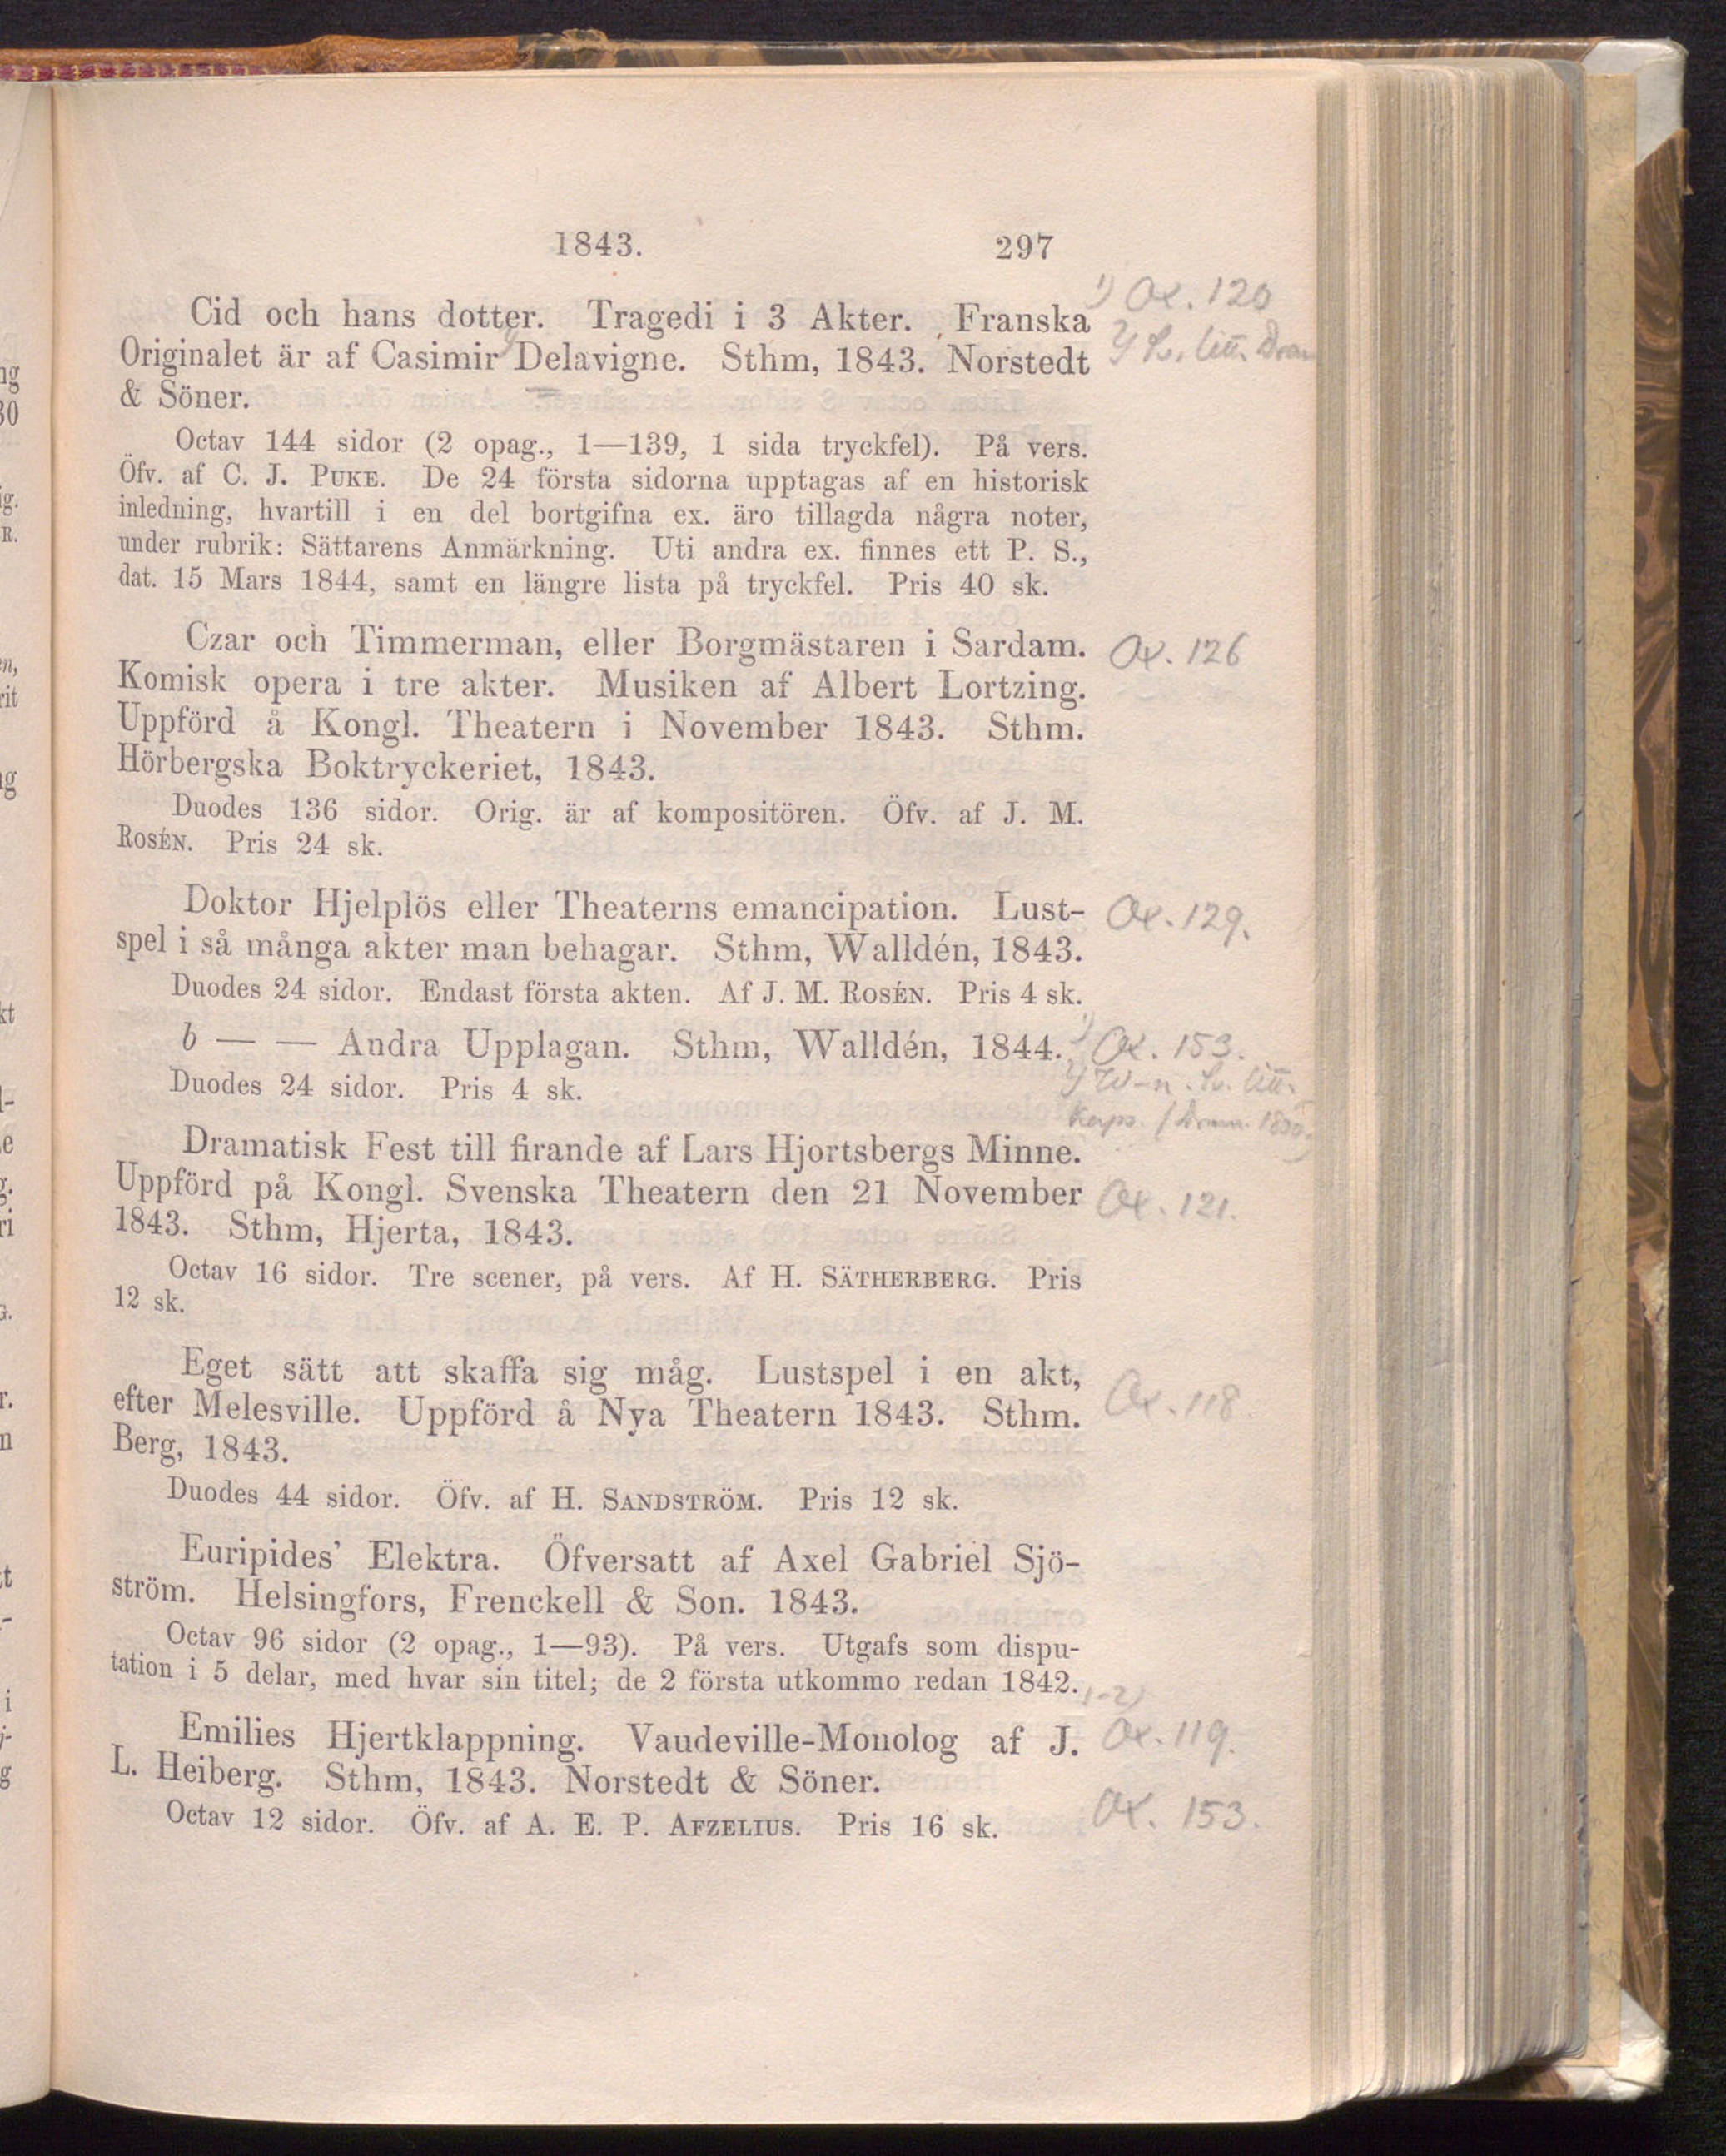 1843. 297
Cid och hans dotter. Tragedi i 3 Akter. Franska
Originalet är af Casimir Delavigne. Sthm, 1843. Norstedt
& Söner.
Octav 144 sidor (2 opag., 1—139, 1 sida tryckfel). På vers.
Öfv. af C. J. PUKE. De 24 första sidorna upptagas af en historisk
inledning, hvartill i en del bortgifna ex. äro tillagda några noter,
under rubrik: Sättarens Anmärkning. Uti andra ex. finnes ett P. S.,
dat. 15 Mars 1844, samt en längre lista på tryckfel. Pris 40 sk.
Czar och Timmerman, eller Borgmästaren i Sardam.
Komisk opera i tre akter. Musiken af Albert Lortzing.
Uppförd å Kongl. Theatern i November 1843. Sthm.
Hörbergska Boktryckeriet, 1843.
Duodes 136 sidor. Orig. är af kompositören. Öfv. af J. M.
ROSÉN. Pris 24 sk.
Doktor Hjelplös eller Theaterns emancipation. Lust-
spel i så många akter man behagar. Sthm, Walldén, 1843.
Duodes 24 sidor. Endast första akten. Af J. M. ROSÉN. Pris 4 sk.
b — — Andra Upplagan. Sthm, Walldén, 1844.
Duodes 24 sidor. Pris 4 sk.
Dramatisk Fest till firande af Lars Hjortsbergs Minne.
Uppförd på Kongl. Svenska Theatern den 21 November
1843. Sthm, Hjerta, 1843.
Octav 16 sidor. Tre scener, på vers. Af H. SÄTHERBERG. Pris
12 sk.
Eget sätt att skaffa sig måg. Lustspel i en akt,
efter Melesville. Uppförd å Nya Theatern 1843. Sthm.
Berg, 1843.
Duodes 44 sidor. Öfv. af H. SANDSTRÖM. Pris 12 sk.
Euripides' Elektra. Öfversatt af Axel Gabriel Sjö-
ström. Helsingfors, Frenckell & Son. 1843.
Octav 96 sidor (2 opag., 1—93). På vers. Utgafs som dispu-
tation i 5 delar, med hvar sin titel; de 2 första utkommo redan 1842.
Emilies Hjertklappning. Vaudeville-Monolog af J.
L. Heiberg. Sthm, 1843. Norstedt & Söner.
Octav 12 sidor. Öfv. af A. E. P. AFZELIUS. Pris 16 sk.
1) Ox. 120
Ox. 126
Ox. 129.
Ox. 153.
Ox. 121.
Ox. 118
1-2)
Ox. 119.
Ox. 153.